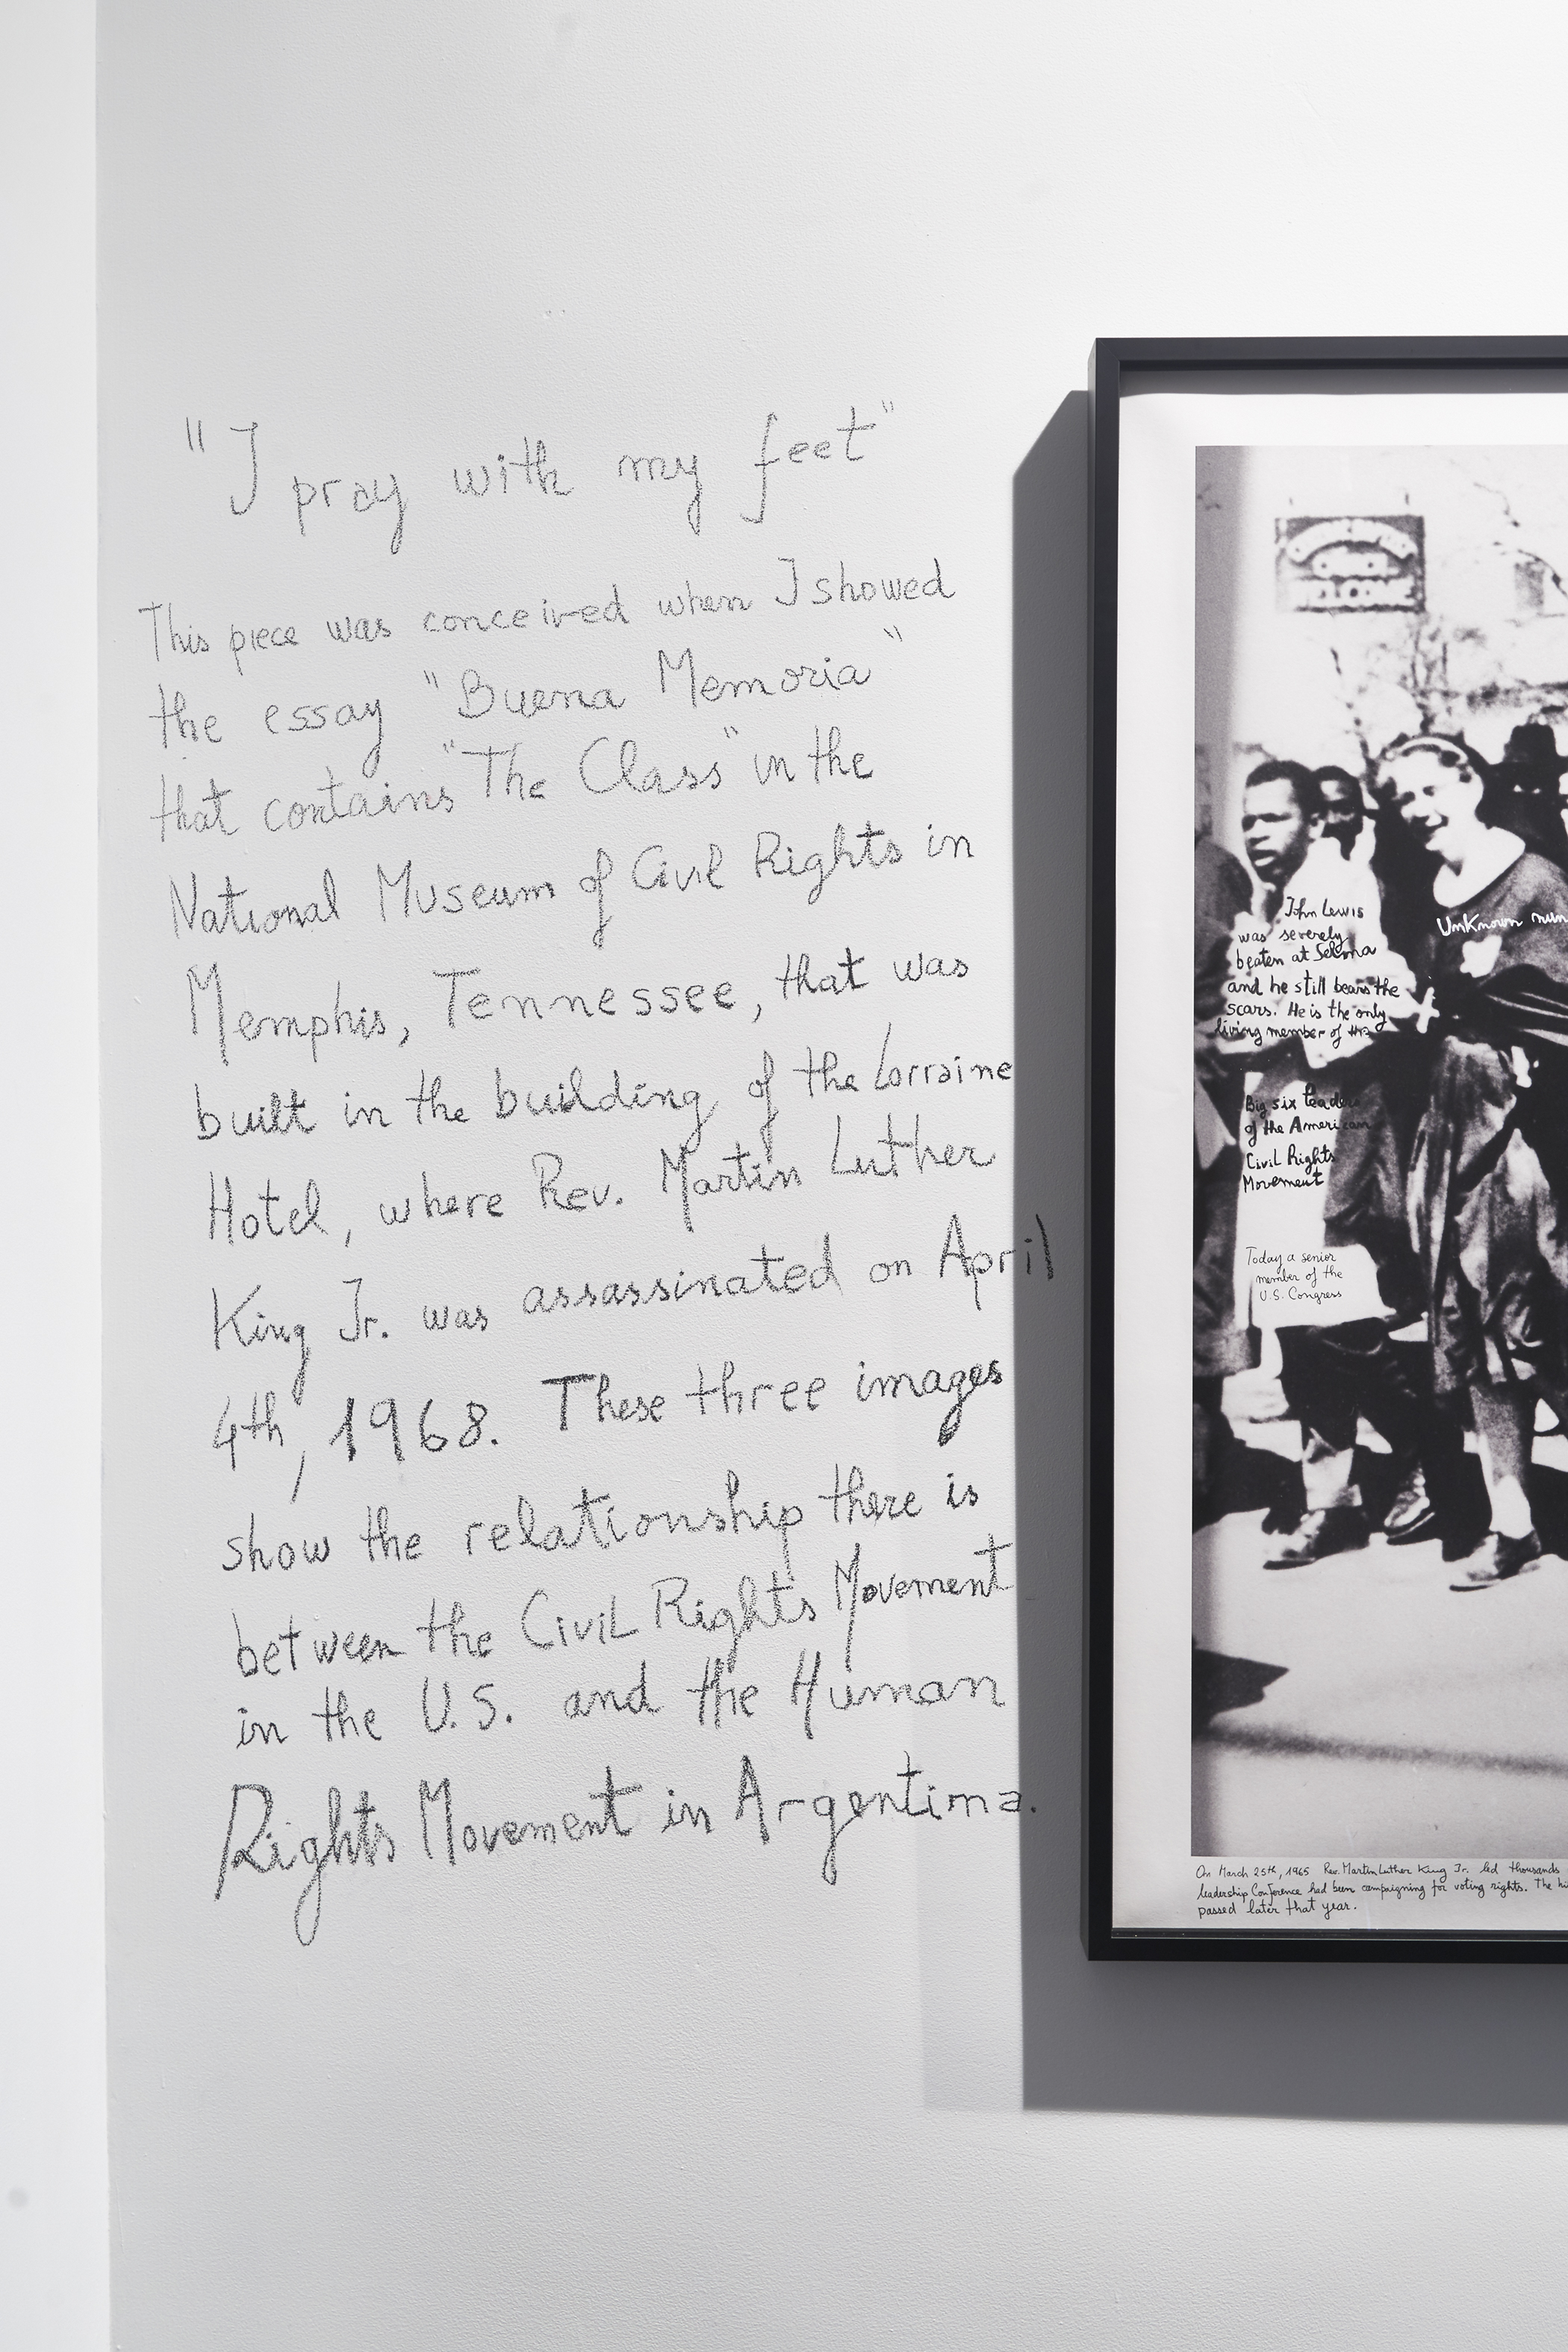 "I pray with my feet"
This piece was conceived when I showed
the essay "Buena Memoria"
that contains "The Class" in the
National Museum of Civil Rights in
Memphis, Tennessee, that was
built in the building of the Lorraine
Hotel, where Rev. Martin Luther
King Jr. was assassinated on April
4th, 1968. These three images
show the relationship there is
between the Civil Rights Movement
in the U.S. and the Human
Rights Movement in Argentina.
John Lewis
was severely
beaten at Selma
and he still bears the
scars. He is the only
living member of the
Big six leaders
of the American
Civil Rights
Movement
Today a senior
member of the
U.S. Congress
Unknown nun
On March 25th, 1965 Rev. Martin Luther King Jr. led thousands
leadership Conference had been campaigning for voting rights. The
passed later that year.